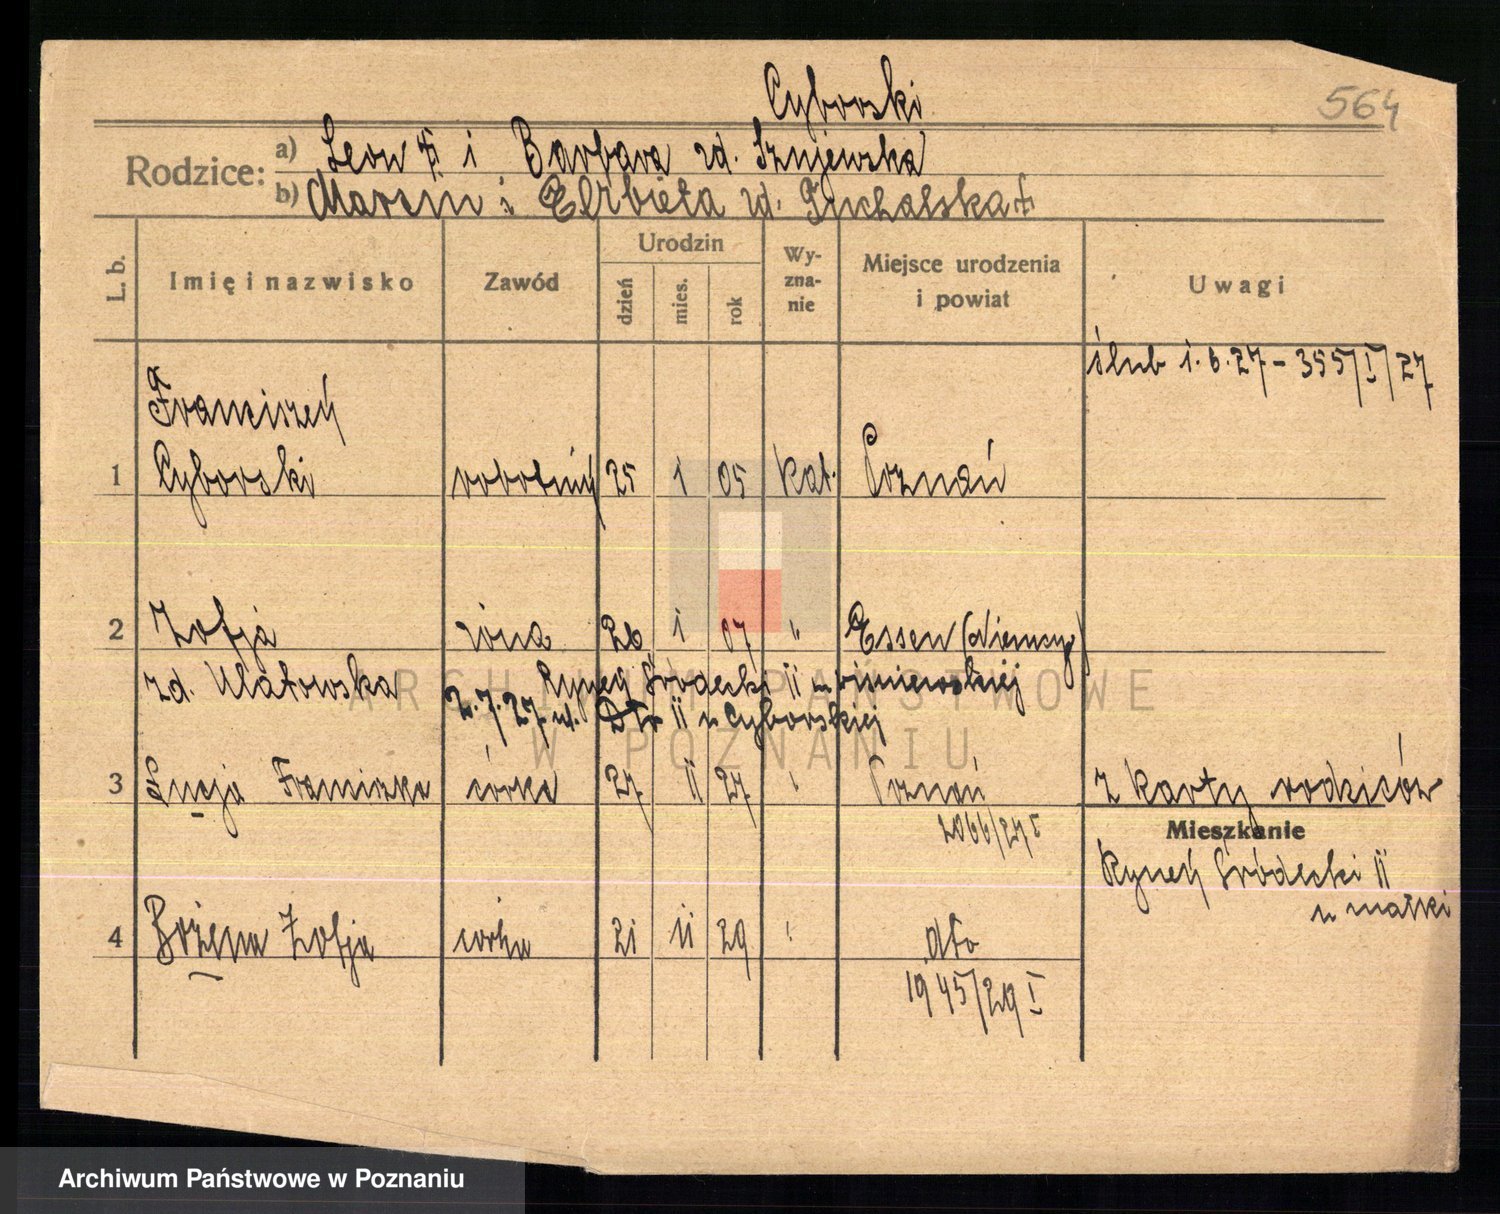 Cyborski
564
Rodzice:
a) Leon † i Barbara zd. Sznjewska
b) Marcin i Elżbieta zd. Tuchalska †
L. b.
Imię i nazwisko
Zawód
Urodzin
dzień
mies.
rok
Wy-
zna-
nie
Miejsce urodzenia
i powiat
Uwagi
ślub 1.6.27 - 355/I/27
Franciszek
1 Cyborski robotnik 25 1 05 kat. Poznań
2 Zofja żona 26 1 07 " Essen (Niemcy)
zd. Ulatowska
Rynek Śródecki 11 u Wiśniewskiej
2.7.27 Dto 11 u Cyborskiej
3 Łucja Franciszka córka 27 11 27 " Poznań z karty rodziców
2066/27 I
Mieszkanie
Rynek Śródecki 11
u matki
4 Bożena Zofja córka 21 11 29 " dto
1945/29 I
ARCHIWUM PAŃSTWOWE
W POZNANIU
Archiwum Państwowe w Poznaniu